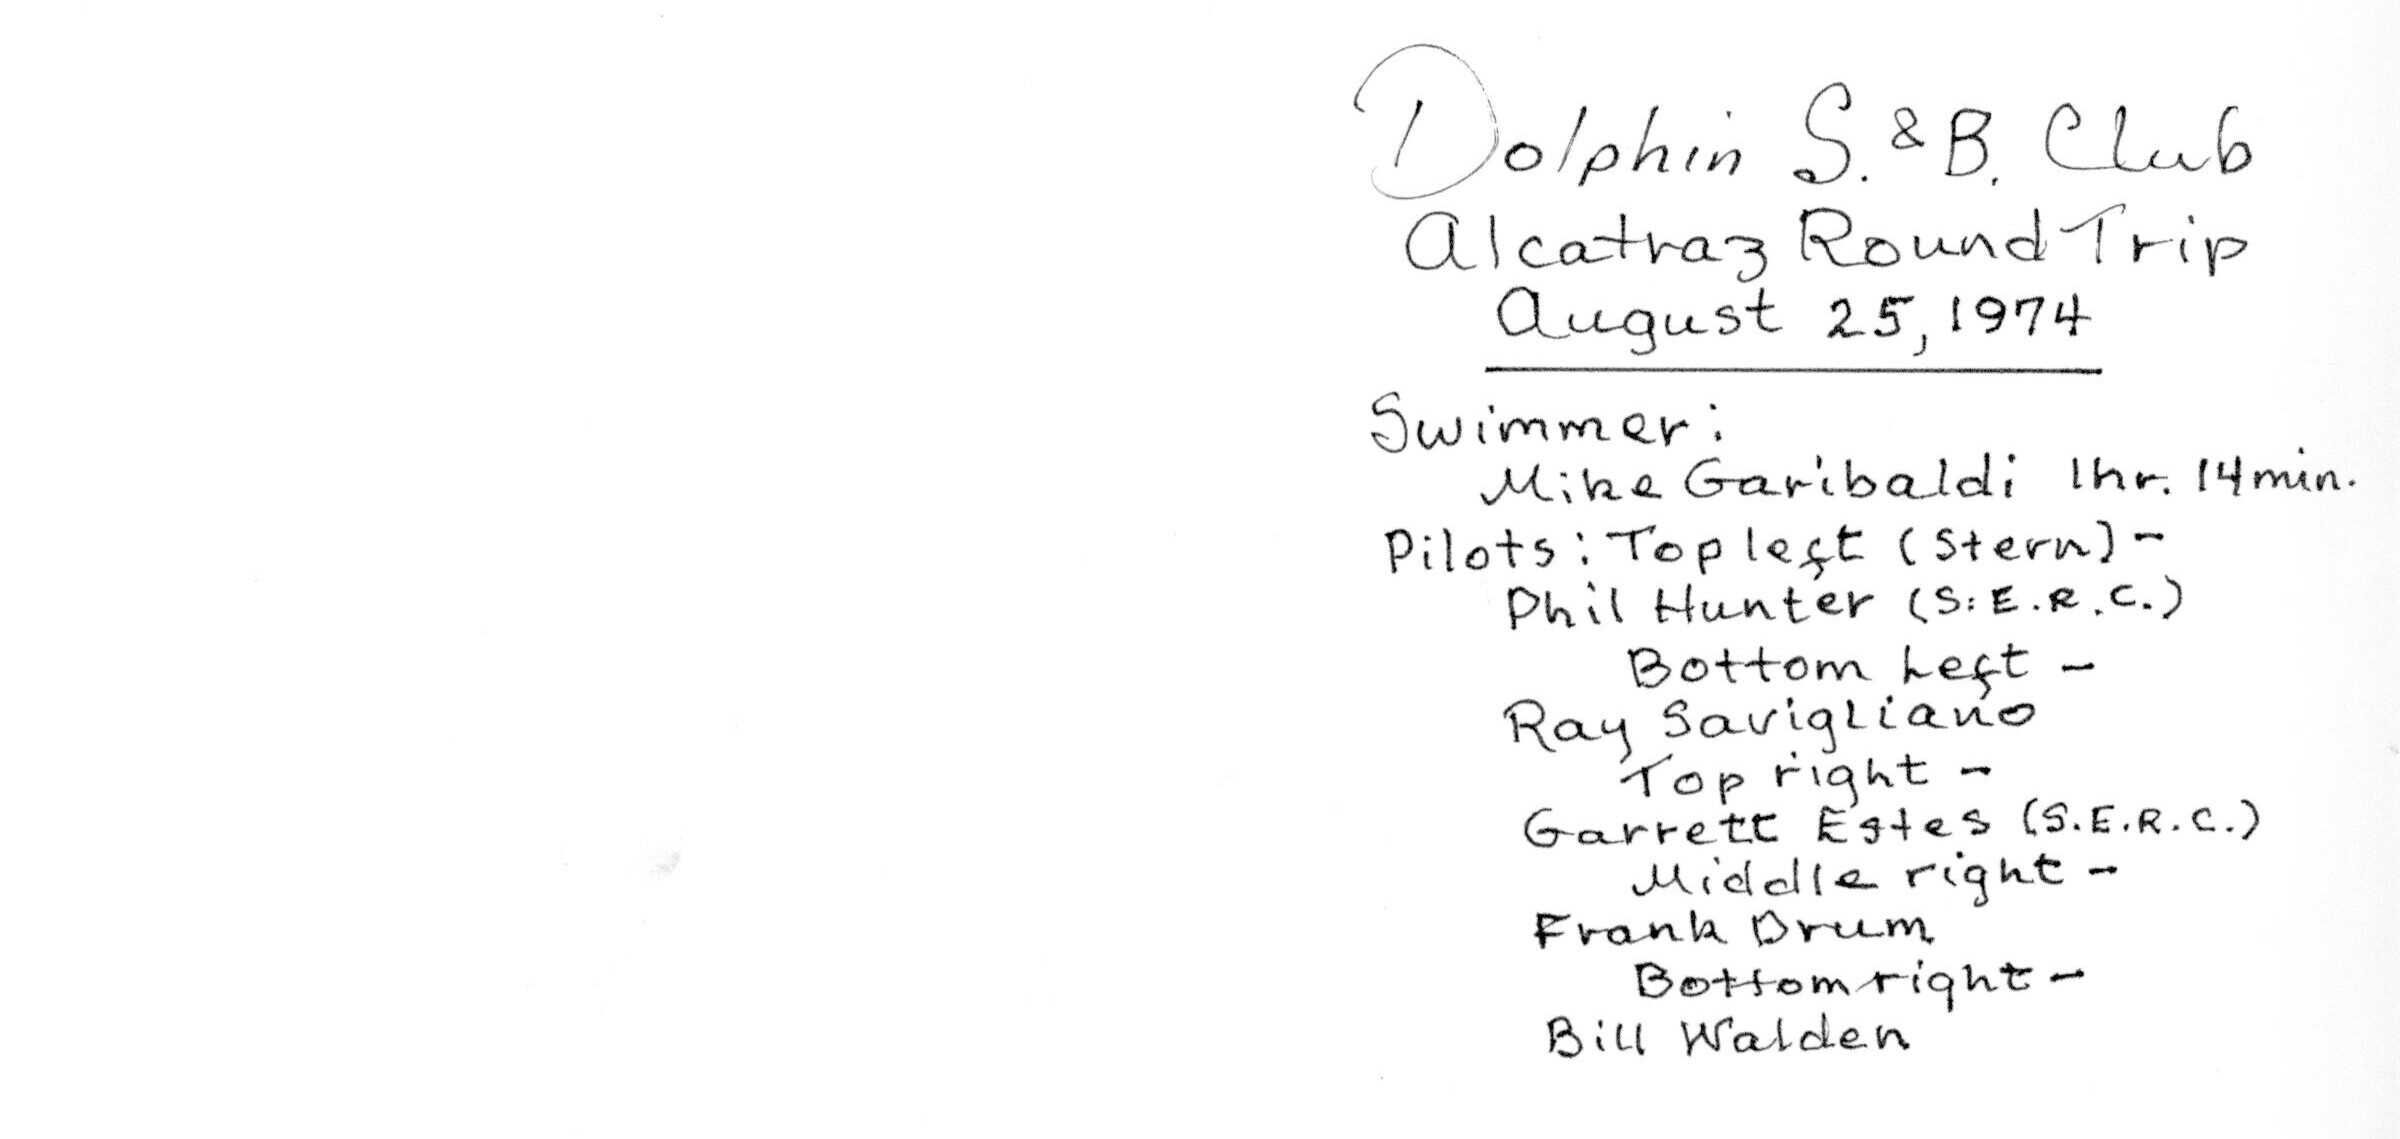 Dolphin S. & B. Club
Alcatraz Round Trip
August 25, 1974
Swimmer:
Mike Garibaldi 1hr. 14min.
Pilots: Top left (Stern) -
Phil Hunter (S.E.R.C.)
Bottom Left -
Ray Savigliano
Top right -
Garrett Estes (S.E.R.C.)
Middle right -
Frank Drum
Bottom right -
Bill Walden